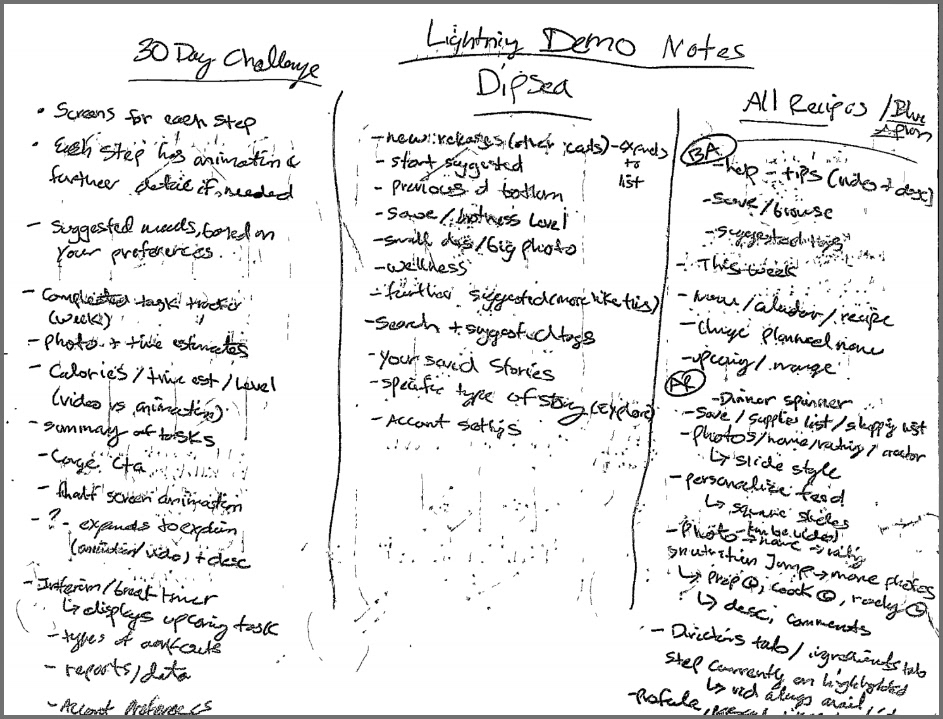 Lightning Demo Notes
30 Day Challenge
• Screens for each step
• Each step has animation &
further detail if needed
- Suggested meals, based on
your preferences.
- Completed task tracker
(week)
- photo + time estimates
- Calories / time est / Level
(video vs animation)
- summary of tasks
- Large Cta
- half screen animation
- ? - expands to explain
(animation/video) + desc
- Interim/break timer
↳ displays upcoming task
- types of workouts
- reports/data
- Account Preferences
Dipsea
- new releases (other cards) - expands
to
list
- start suggested
- previous at bottom
- Save / hotness Level
- small desc / big photo
- wellness
- further suggested (more like this)
- Search + suggested tags
- your saved Stories
- specific type of story (explore)
- Account settings
All Recipes / Blue
Apron
BA
- help - tips (video + desc)
- Save / browse
- suggested tags
- This week
- Menu / calendar / recipe
- Change planned menu
- upcoming / manage
AR
- Dinner spinner
- Save / supplies list / shopping list
- Photos / name / rating / creator
↳ slide style
- personalize feed
↳ square slides
- Photo → name → rating
(can be video)
→ nutrition Jump → more photos
↳ prep, cook, ready
↳ desc, comments
- Directions tab / ingredients tab
step currently on highlighted
↳ vid always avail
- profile,